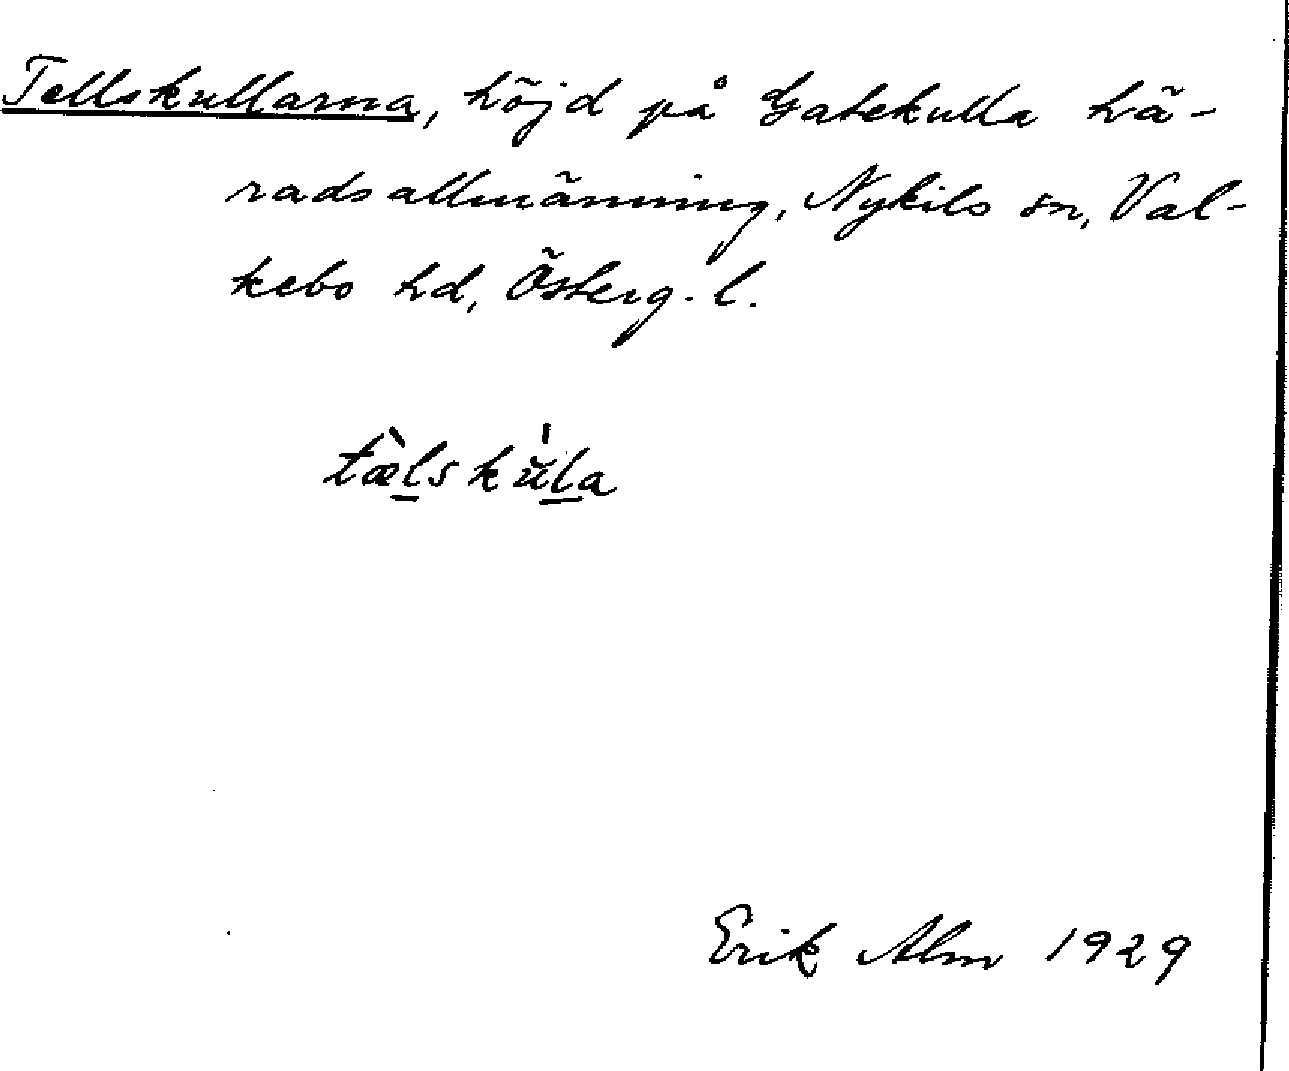 Tellskullarna, höjd på Gatekulla hä-
radsallmänning, Nykils sn, Val-
kebo hd, Österg. l.
tæ̀l̲skŭ́l̲a
Erik Alm 1929